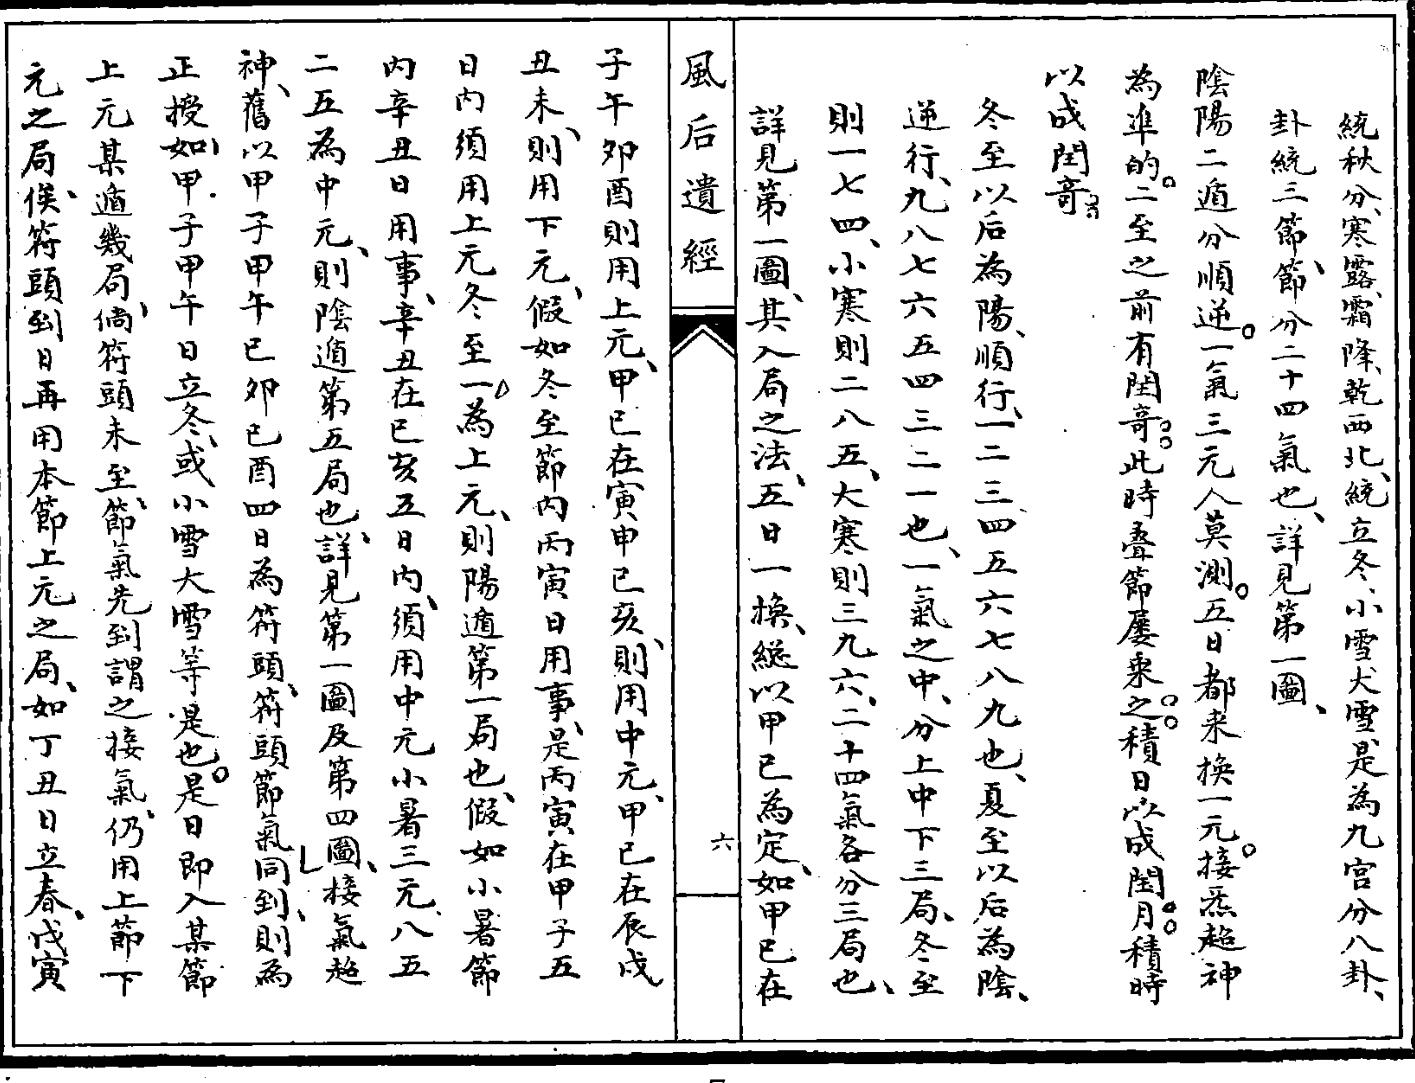 統秋分、寒露、霜降、乾西北、統立冬、小雪大雪是為九宮分八卦、
卦統三節、節分二十四氣也、詳見第一圖、
陰陽二遁分順逆。一氣三元人莫測。五日都来換一元。接炁超神
為準的。二至之前有閏奇。此時叠節屢乘之。積日以成閏月。積時
以成閏奇。
冬至以后為陽、順行、一二三四五六七八九也、夏至以后為陰、
逆行、九八七六五四三二一也、一氣之中、分上中下三局、冬至
則一七四、小寒則二八五、大寒則三九六、二十四氣各分三局也、
詳見第一圖、其入局之法、五日一換、総以甲己為定、如甲己在
風后遺經
六
子午卯酉則用上元、甲己在寅申已亥、則用中元、甲己在辰戌
丑未、則用下元、假如冬至節内丙寅日用事、是丙寅在甲子五
日内須用上元冬至一為上元、則陽遁第一局也、假如小暑節
内辛丑日用事、辛丑在已亥五日内、須用中元小暑三元、八五
二五為中元、則陰遁第五局也、詳見第一圖及第四圖、接氣超
神、舊以甲子甲午已卯已酉四日為符頭、符頭節氣同到、則為
正授如甲子甲午日立冬、或小雪大雪等是也。是日即入某節
上元某遁幾局、倘符頭未至、節氣先到謂之接氣、仍用上節下
元之局、俟符頭到日再用本節上元之局、如丁丑日立春、戊寅